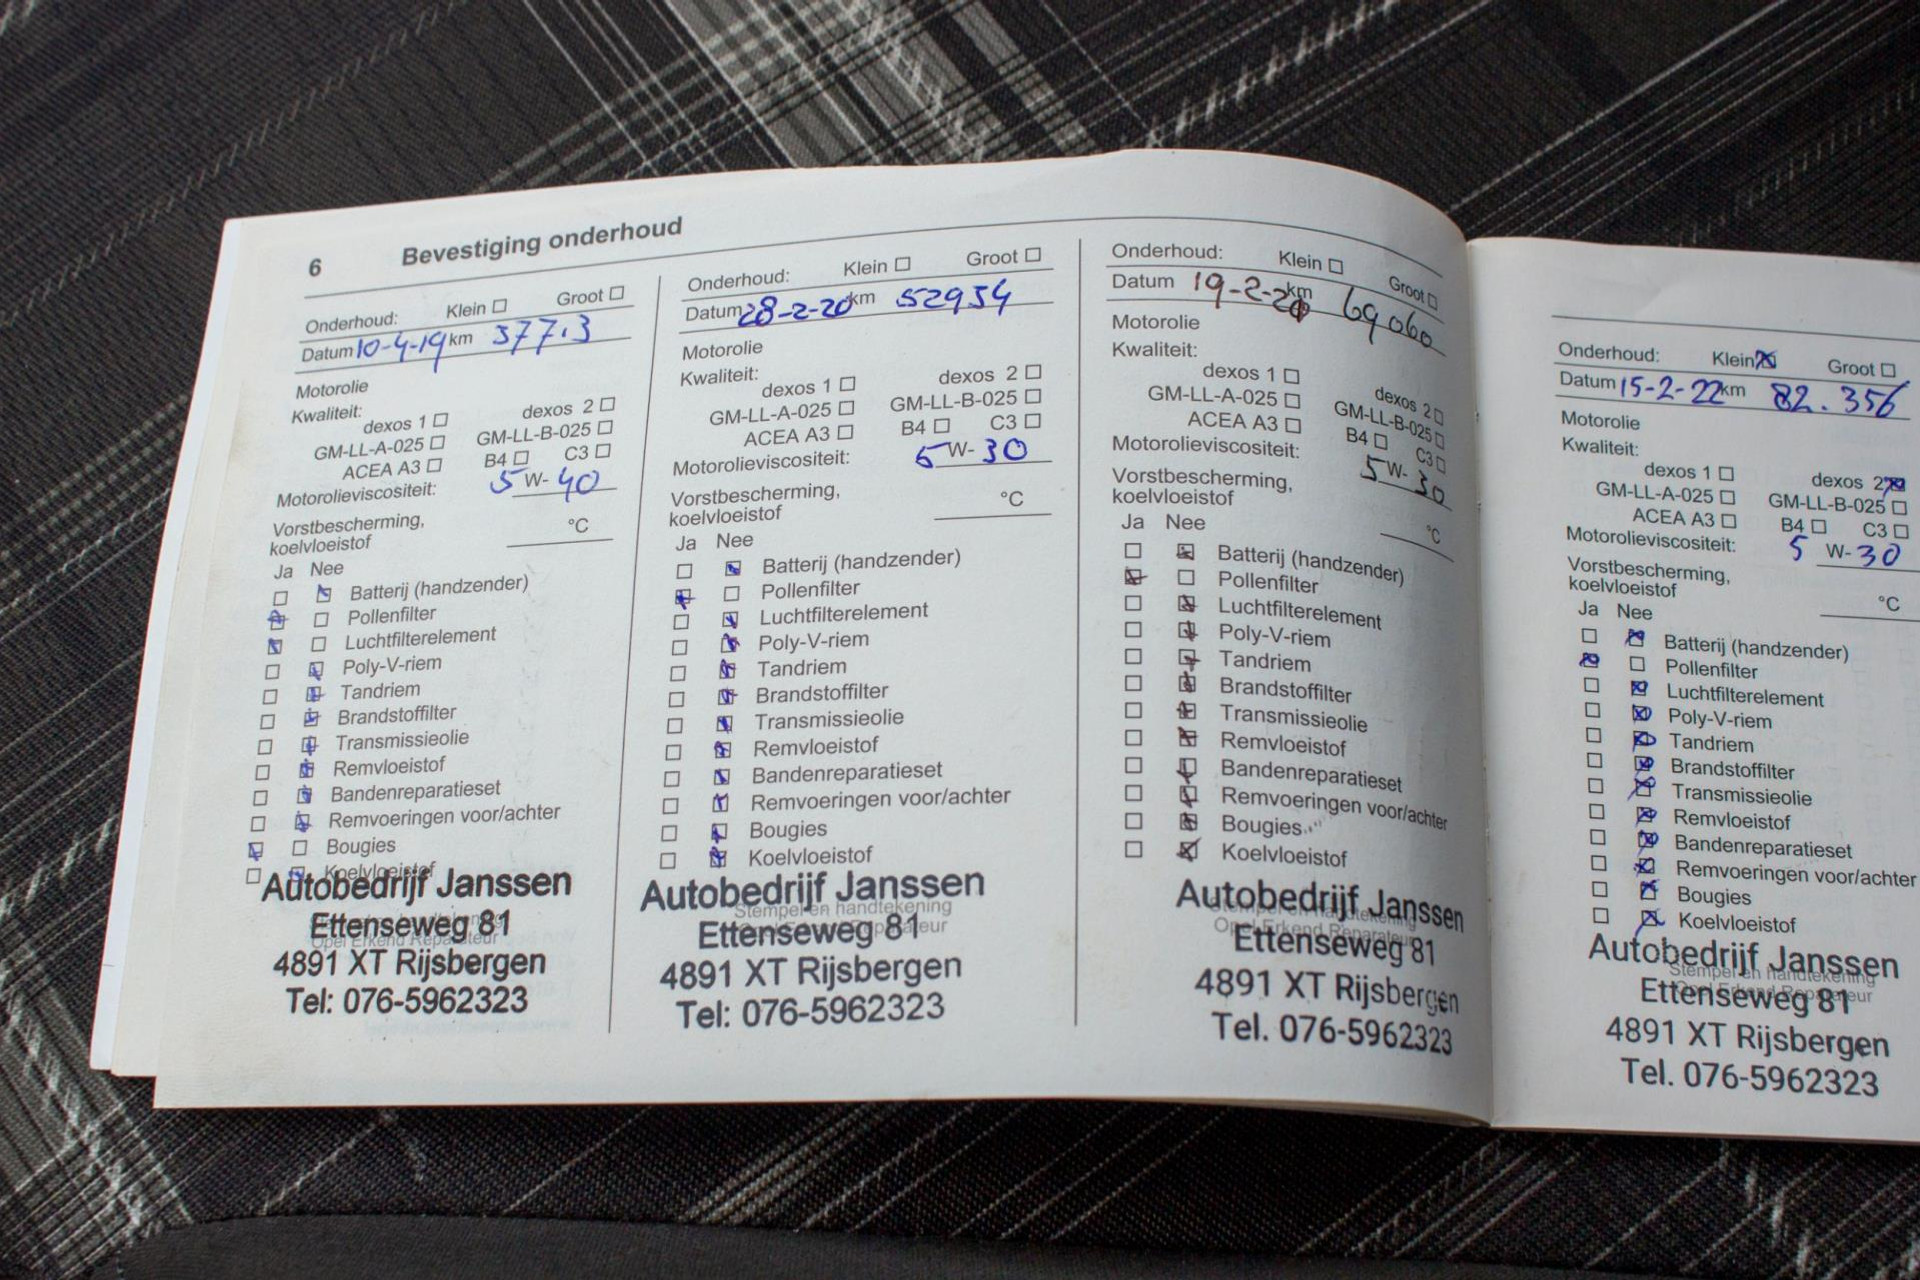 6 Bevestiging onderhoud
Onderhoud: Klein Groot
Datum 10-4-19 km 377.3
Motorolie
Kwaliteit:
dexos 1 dexos 2
GM-LL-A-025 GM-LL-B-025
ACEA A3 B4 C3
Motorolieviscositeit: 5 W- 40
Vorstbescherming,
koelvloeistof °C
Ja Nee
Batterij (handzender)
Pollenfilter
Luchtfilterelement
Poly-V-riem
Tandriem
Brandstoffilter
Transmissieolie
Remvloeistof
Bandenreparatieset
Remvoeringen voor/achter
Bougies
Koelvloeistof
Autobedrijf Janssen
Ettenseweg 81
Opel Erkend Reparateur
4891 XT Rijsbergen
Tel: 076-5962323
Onderhoud: Klein Groot
Datum 28-2-20 km 52954
Motorolie
Kwaliteit:
dexos 1 dexos 2
GM-LL-A-025 GM-LL-B-025
ACEA A3 B4 C3
Motorolieviscositeit: 5 W- 30
Vorstbescherming,
koelvloeistof °C
Ja Nee
Batterij (handzender)
Pollenfilter
Luchtfilterelement
Poly-V-riem
Tandriem
Brandstoffilter
Transmissieolie
Remvloeistof
Bandenreparatieset
Remvoeringen voor/achter
Bougies
Koelvloeistof
Autobedrijf Janssen
Stempel en handtekening
Ettenseweg 81
Opel Erkend Reparateur
4891 XT Rijsbergen
Tel: 076-5962323
Onderhoud: Klein Groot
Datum 19-2-21 km 69060
Motorolie
Kwaliteit:
dexos 1 dexos 2
GM-LL-A-025 GM-LL-B-025
ACEA A3 B4 C3
Motorolieviscositeit: 5 W- 30
Vorstbescherming,
koelvloeistof °C
Ja Nee
Batterij (handzender)
Pollenfilter
Luchtfilterelement
Poly-V-riem
Tandriem
Brandstoffilter
Transmissieolie
Remvloeistof
Bandenreparatieset
Remvoeringen voor/achter
Bougies
Koelvloeistof
Autobedrijf Janssen
Stempel en handtekening
Opel Erkend Reparateur
Ettenseweg 81
4891 XT Rijsbergen
Tel. 076-5962323
Onderhoud: Klein Groot
Datum 15-2-22 km 82.356
Motorolie
Kwaliteit:
dexos 1 dexos 2
GM-LL-A-025 GM-LL-B-025
ACEA A3 B4 C3
Motorolieviscositeit: 5 W- 30
Vorstbescherming,
koelvloeistof °C
Ja Nee
Batterij (handzender)
Pollenfilter
Luchtfilterelement
Poly-V-riem
Tandriem
Brandstoffilter
Transmissieolie
Remvloeistof
Bandenreparatieset
Remvoeringen voor/achter
Bougies
Koelvloeistof
Autobedrijf Janssen
Stempel en handtekening
Ettenseweg 81
Opel Erkend Reparateur
4891 XT Rijsbergen
Tel. 076-5962323